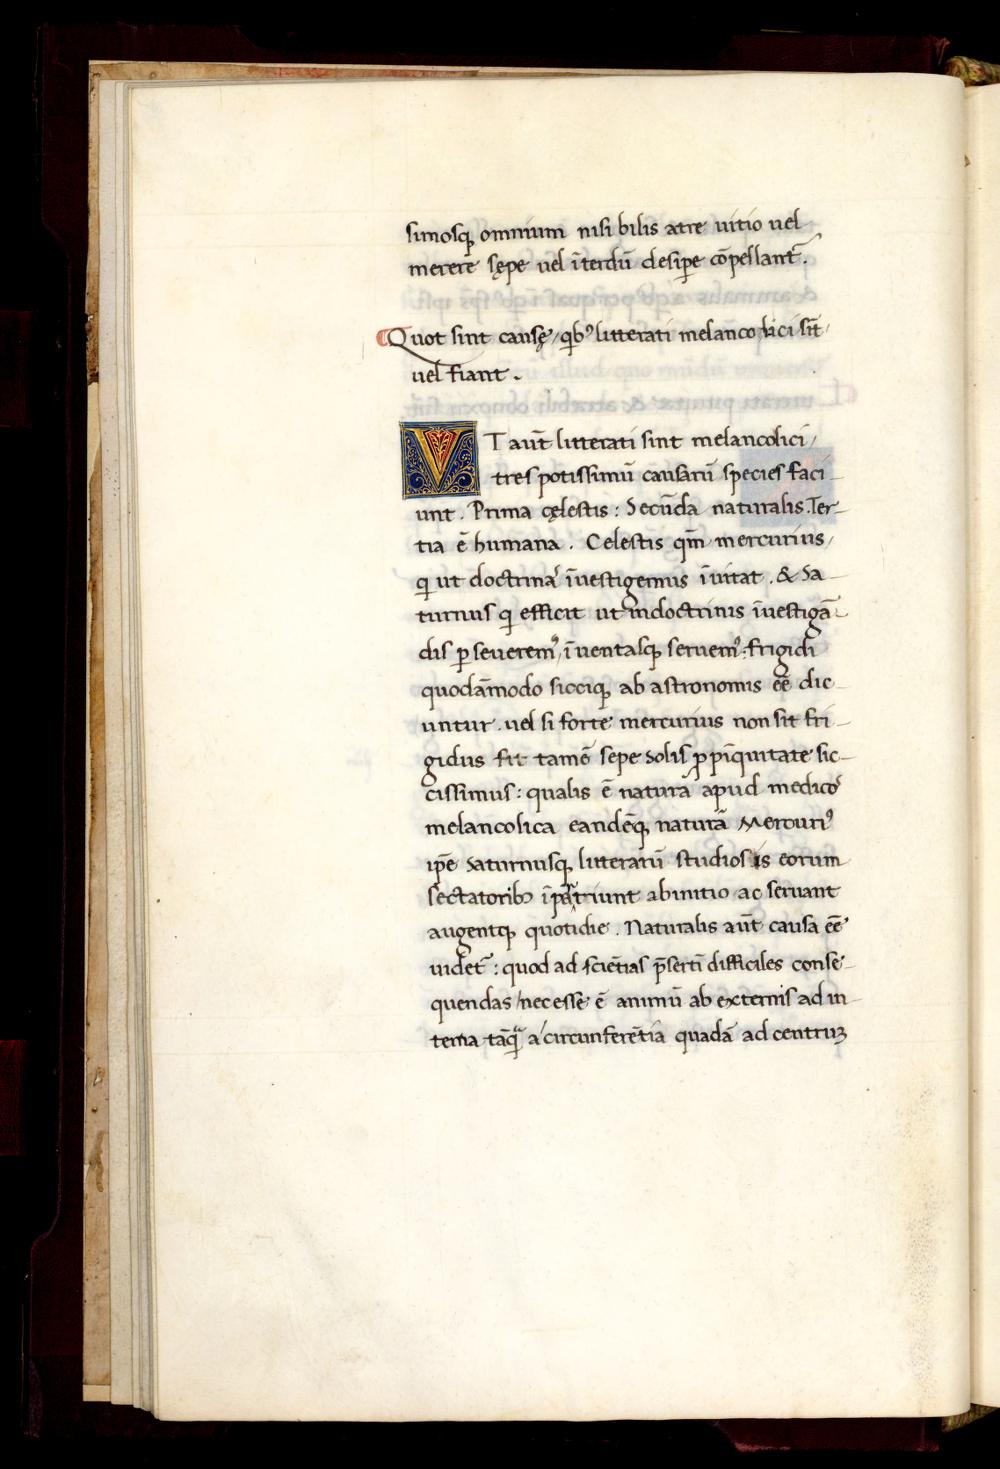 simosq̨ omnium nisi bilis atre uitio uel
merere᷒ sępe uel ĩterdũ desipe᷒ cõpellant᷒.
Quot sint causę, qb᷒ litterati melancolici sĩt,
uel fiant.
VT aut̃ litterati sint melancolici,
tres potissimũ causarũ species faci-
unt. Prima cęlestis: Secũda naturalis. Ter-
tia ẽ humana. Celestis qm̃ mercurius,
q̃ ut doctrinaʾ ĩuestigemus ĩuitat. & Sa-
turnus q̃ efficit ut in doctrinis ĩuestigã-
dis p̱ seuerem᷒, ĩuentasq̨ seruem᷒: frigidi
quodãmodo siccíq̨ ab astronomis eẽ dic-
untur. uel si forte mercurius non sit fri-
gidus fit tamẽ sepe Solis p̱pĩquitate sic-
cissimus: qualis ẽ naturaʾ apud medicoˢ
melancolica eandẽq̨ naturã Mercuri᷒
ip̃e Saturnusq̨ litterarũ studiosis eorum
sectatorib᷒ ĩpãtiunt ab initio ac seruant
augentq̨ quotidie. Naturalis aut̃ causa eẽ
uidet᷒: quod ad sciẽtias p̃serti᷒ difficiles conse-
quendas, necesse ẽ animũ ab externis ad in-
terna tãq̃ᵃ a circunferẽtia quadã ad centruꝫ